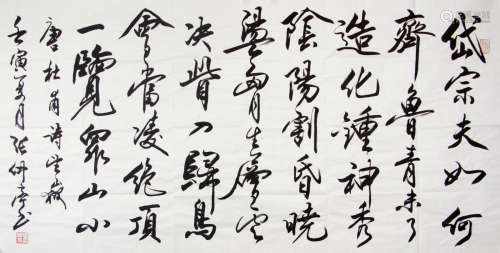 岱宗夫如何
齊魯青未了
造化鍾神秀
陰陽割昏曉
盪胷生層雲
决眥入歸鳥
會當凌絶頂
一覽眾山小
唐杜甫詩望嶽
壬寅月張書